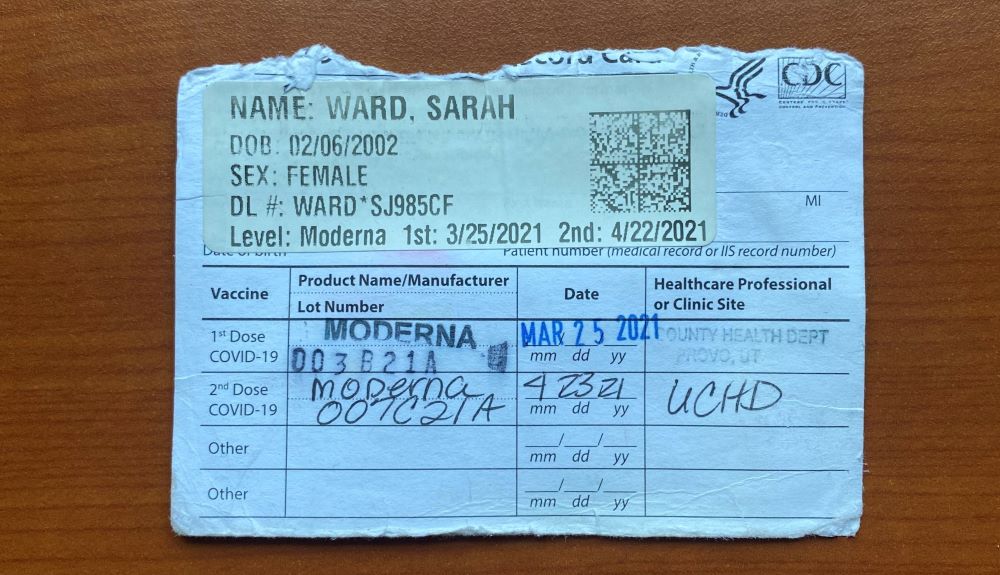 cord Card
CDC
CENTERS FOR DISEASE
CONTROL AND PREVENTION
NAME: WARD, SARAH
DOB: 02/06/2002
SEX: FEMALE
DL #: WARD*SJ985CF
Level: Moderna 1st: 3/25/2021 2nd: 4/22/2021
MI
Date of birth Patient number (medical record or IIS record number)
Vaccine
Product Name/Manufacturer
Lot Number
Date
Healthcare Professional
or Clinic Site
1st Dose
COVID-19
MODERNA
003B21A
MAR 25 2021
mm dd yy
OUNTY HEALTH DEPT
PROVO, UT
2nd Dose
COVID-19
Moderna
007C21A
4 23 21
mm dd yy
UCHD
Other
__/__/__
mm dd yy
Other
__/__/__
mm dd yy